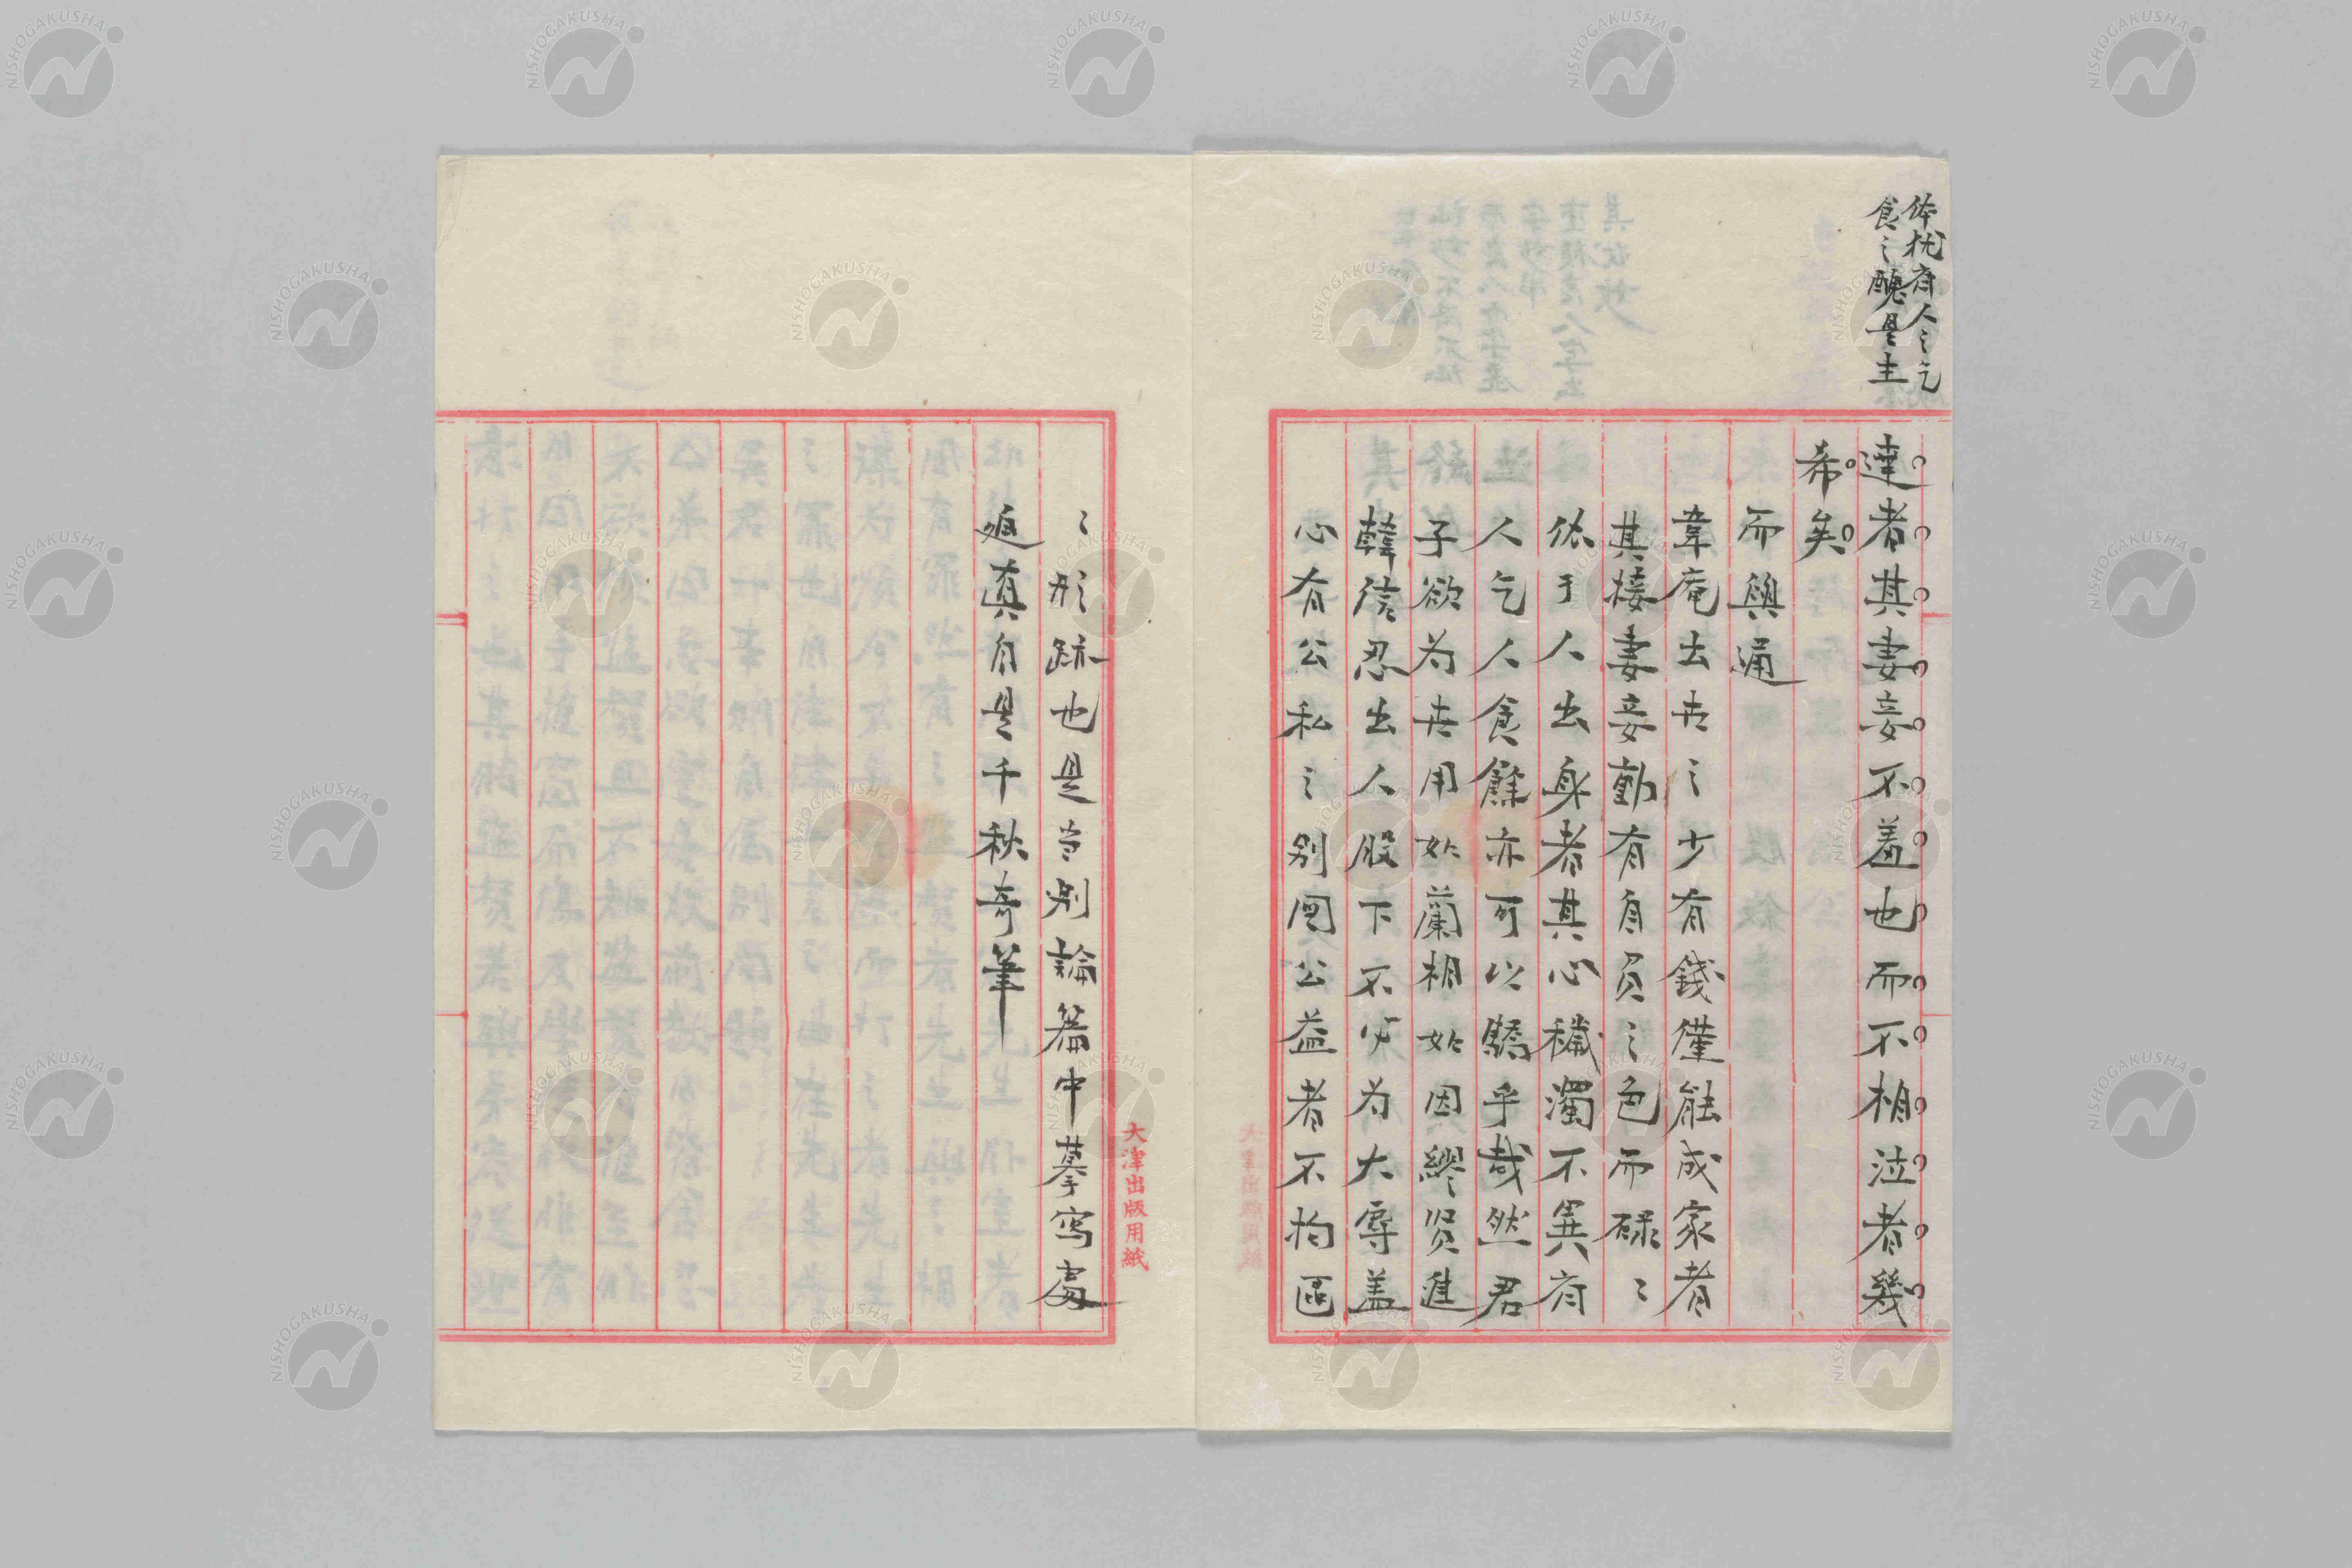 体状斉人之乞
食之醜是主
達者其妻妾不羞也而不相泣者幾
希矣
而與通
韋庵云世之少有錢僅能成家者
其接妻妾動有自負之色而碌々
依于人出身者其心穢濁不異斉
人乞人食餘亦可以驕乎哉然君
子欲為世用如藺相如因繆賢進
韓信忍出人股下不必為大辱蓋
心有公私之別図公益者不拘区
々形跡也是当別論篇中摹写處
逼真自是千秋奇筆
大津出版用紙